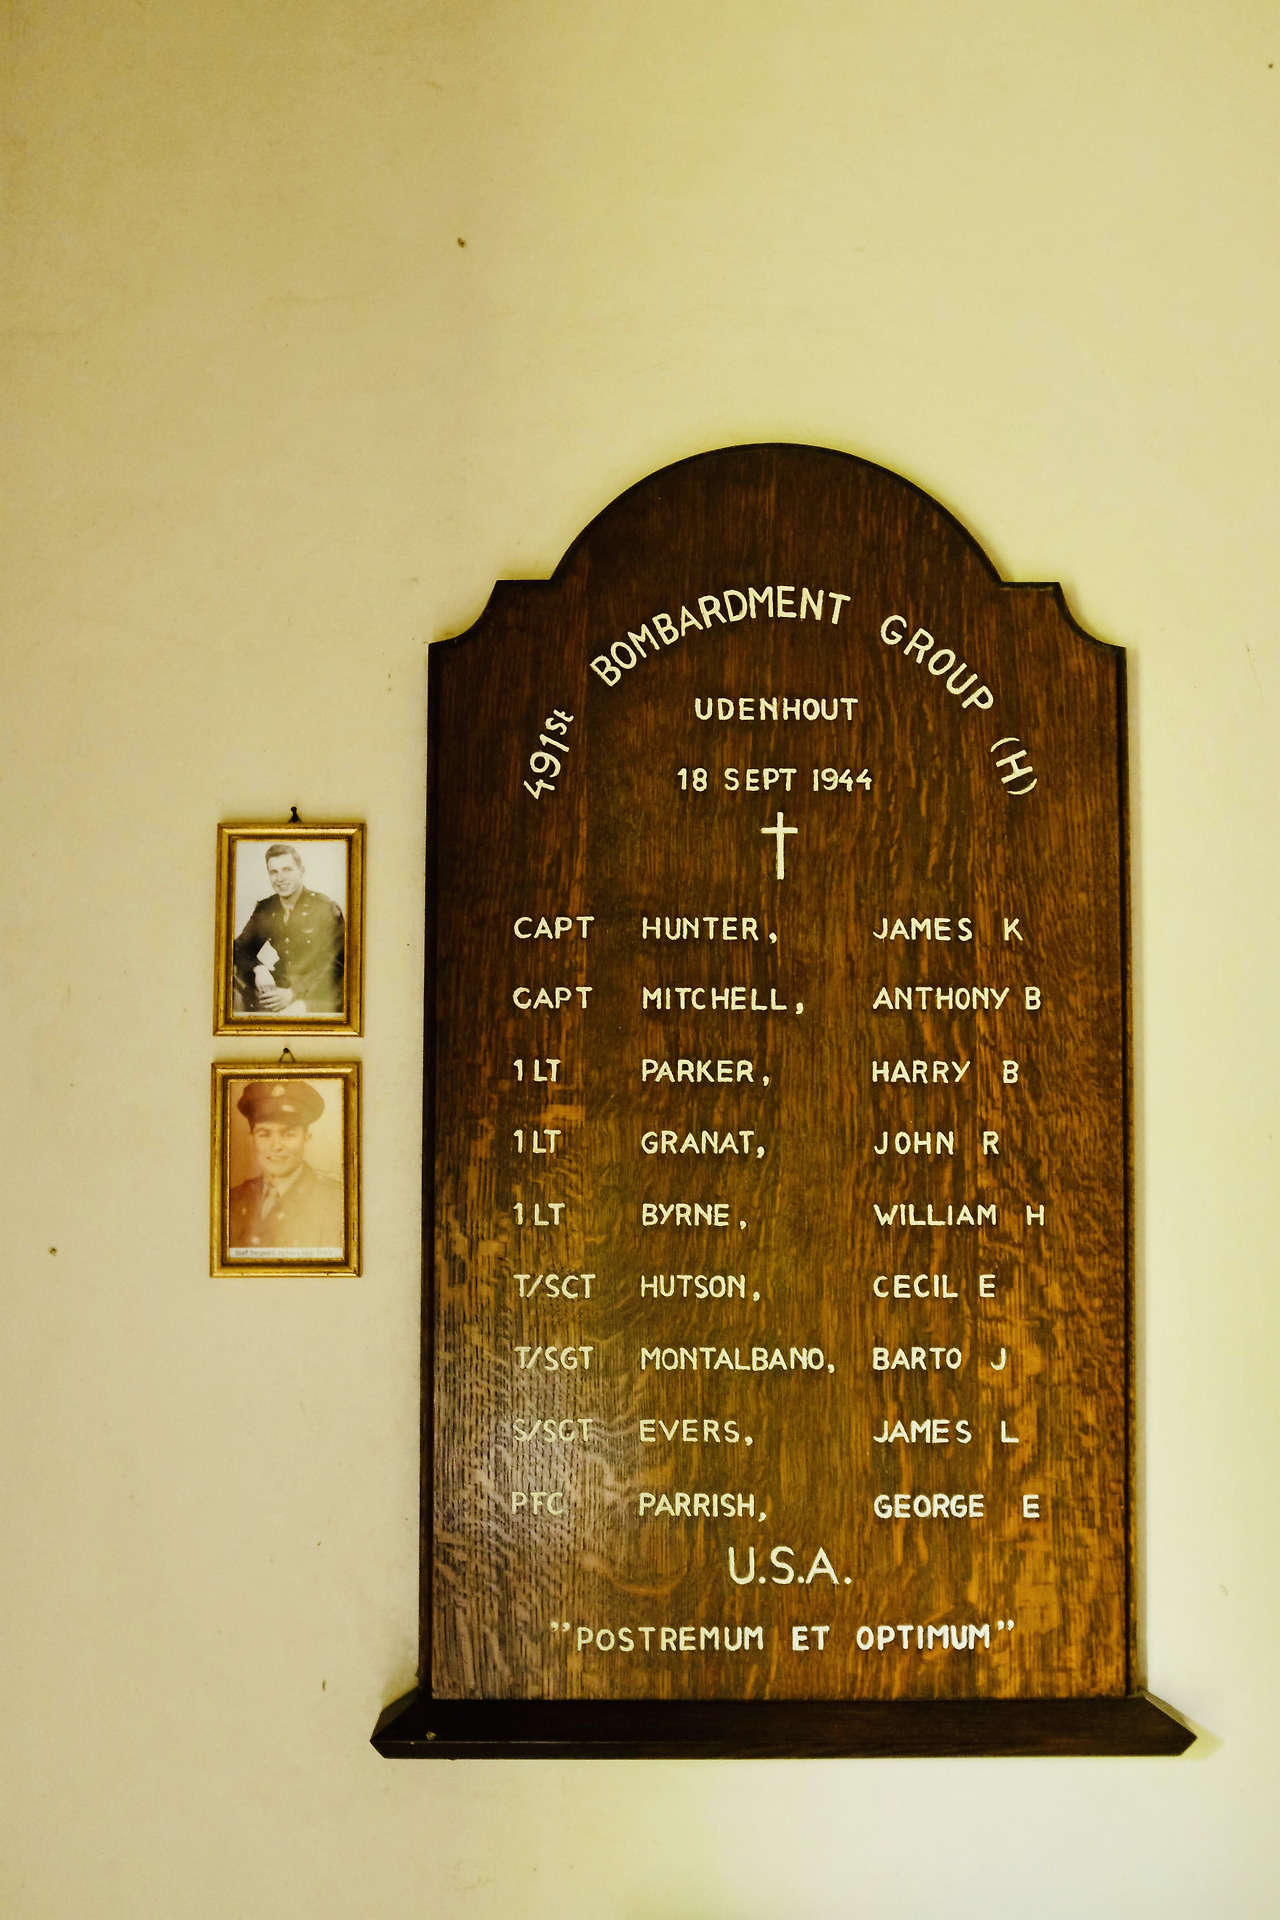 491St BOMBARDMENT GROUP (H)
UDENHOUT
18 SEPT 1944
CAPT HUNTER, JAMES K
CAPT MITCHELL, ANTHONY B
1 LT PARKER, HARRY B
1 LT GRANAT, JOHN R
1 LT BYRNE, WILLIAM H
T/SCT HUTSON, CECIL E
T/SGT MONTALBANO, BARTO J
S/SGT EVERS, JAMES L
PFC PARRISH, GEORGE E
U.S.A.
"POSTREMUM ET OPTIMUM"
Staff Sergeant James